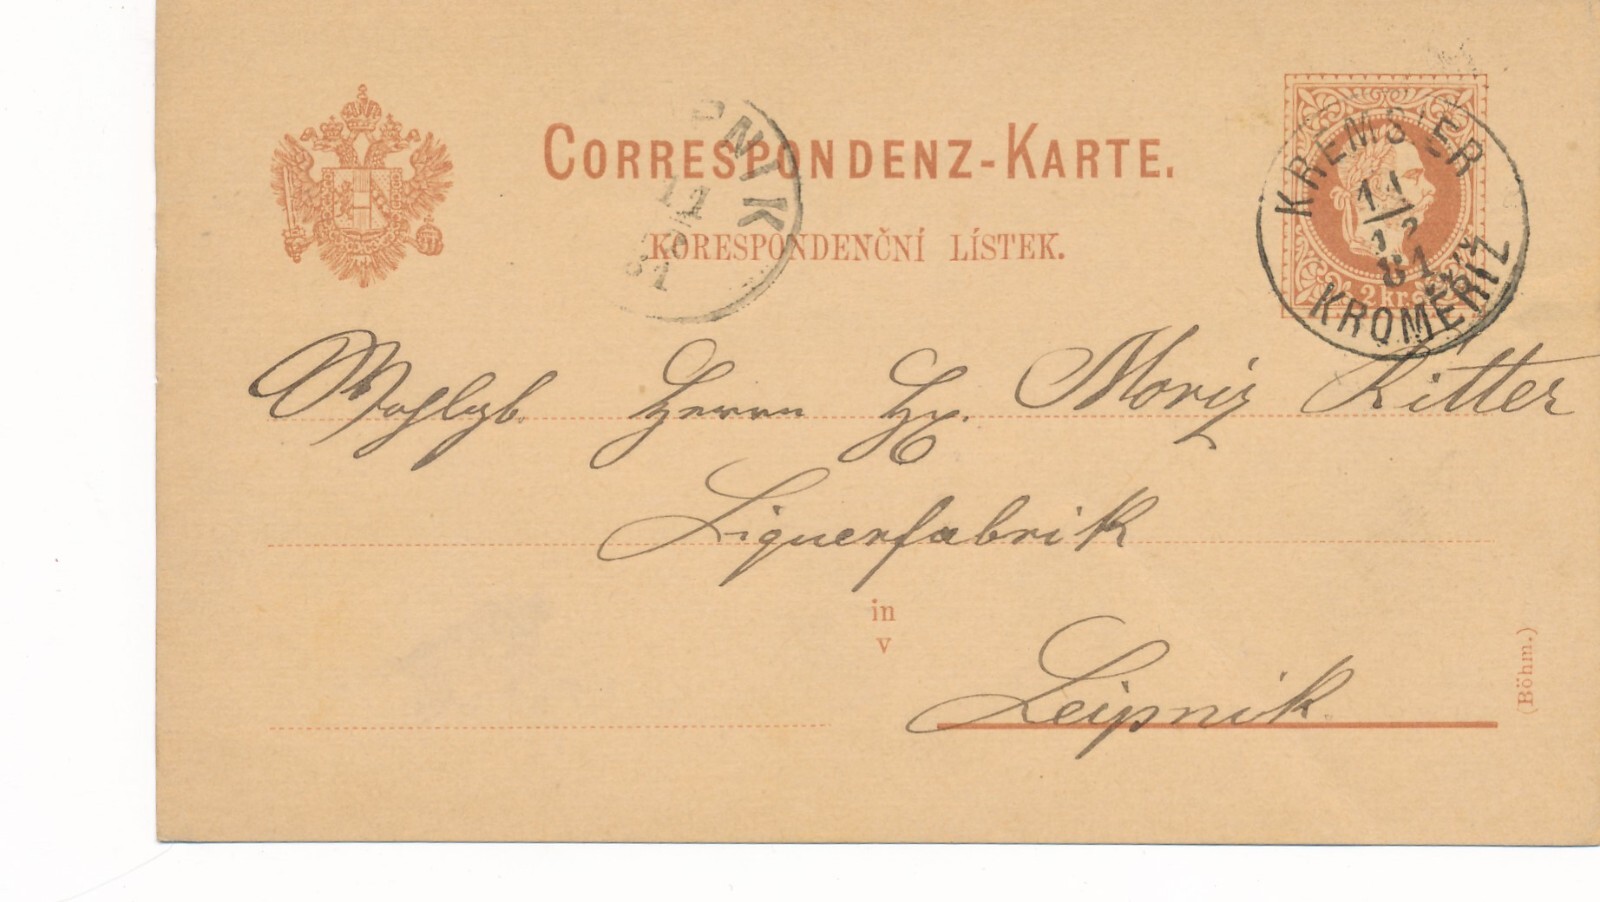 CORRESPONDENZ-KARTE.
KORESPONDENČNÍ LÍSTEK.
PNIK
11
81
KREMSIER
11
12
81
KROMĚŘIZ
2 kr.
Wohlgb. Herrn Hr. Moriz Ritter
Liquerfabrik
in
v
Leipnik.
(Böhm.)